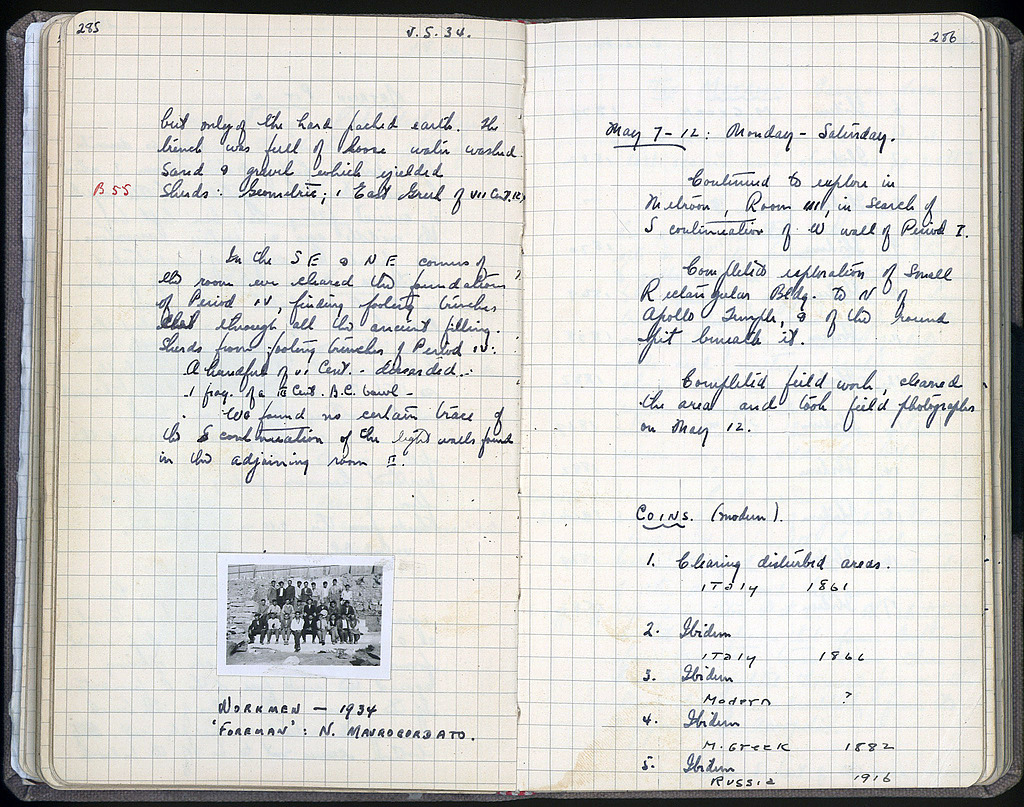 285
5.5.34.
but only of the hard packed earth. The
trench was full of loose water washed
sand & gravel which yielded
B 55
Sherds: Geometric; 1 East Greek of VII Cent. B.C.
In the SE & NE corners of
the room we cleared the foundations
of Period IV, finding footing trenches
through all the ancient filling.
Sherds from footing trenches of Period IV:
A handful of VI Cent. - discarded.
1 frag. of a Cent. B.C. bowl -
We found no certain trace of
the S continuation of the light walls found
in the adjoining room II.
WORKMEN — 1934
'FOREMAN': N. MAVROGORDATO.
286
May 7-12: Monday - Saturday.
Continued to explore in
Metroon, Room III, in search of
S continuation of W wall of Period I.
Completed exploration of Small
Rectangular Bldg. to N of
Apollo Temple, & of the round
pit beneath it.
Completed field work, cleaned
the area and took field photographs
on May 12.
COINS. (modern).
1. Clearing disturbed areas.
Italy 1861
2. Ibidem
Italy 1866
3. Ibidem
Modern ?
4. Ibidem
M. Greek 1882
5. Ibidem
Russia 1916